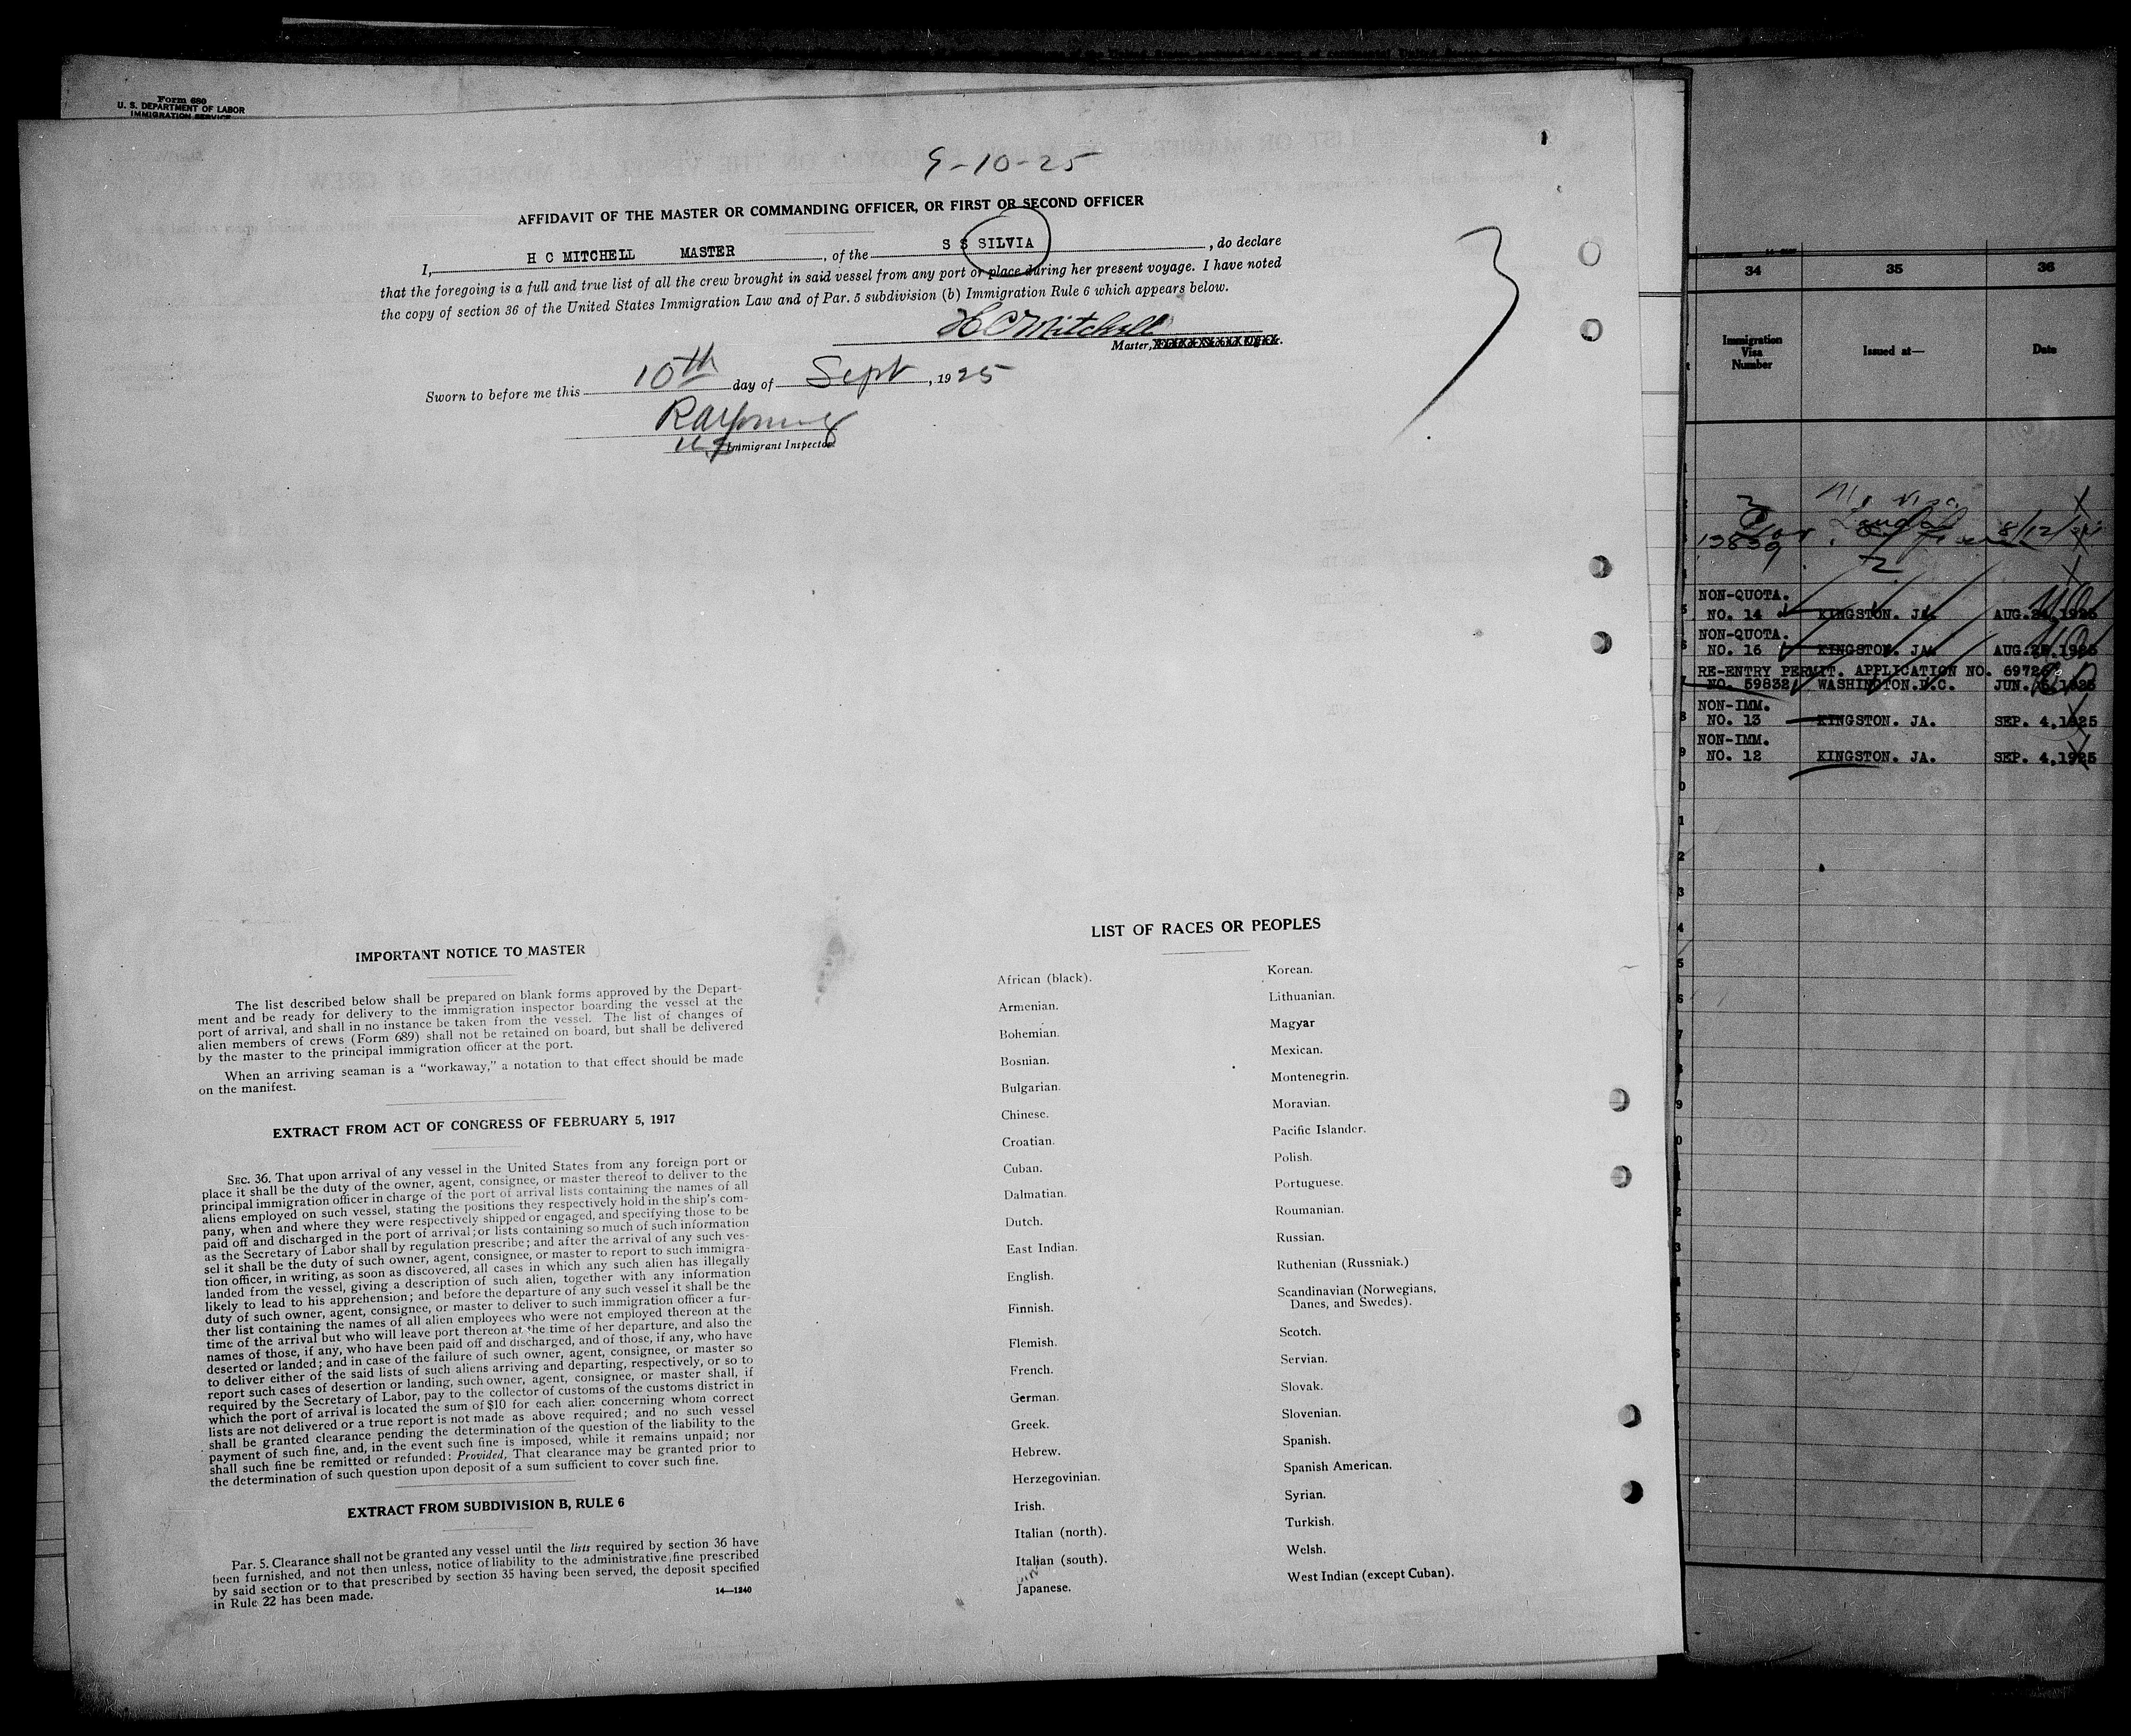 Form 680
U. S. DEPARTMENT OF LABOR
IMMIGRATION SERVICE
9-10-25
AFFIDAVIT OF THE MASTER OR COMMANDING OFFICER, OR FIRST OR SECOND OFFICER
I, H C MITCHELL MASTER, of the S S SILVIA, do declare
that the foregoing is a full and true list of all the crew brought in said vessel from any port or place during her present voyage. I have noted
the copy of section 36 of the United States Immigration Law and of Par. 5 subdivision (b) Immigration Rule 6 which appears below.
H C Mitchell
Master,
Sworn to before me this 10th day of Sept, 1925
U.S. Immigrant Inspector.
IMPORTANT NOTICE TO MASTER
The list described below shall be prepared on blank forms approved by the Depart-
ment and be ready for delivery to the immigration inspector boarding the vessel at the
port of arrival, and shall in no instance be taken from the vessel. The list of changes of
alien members of crews (Form 689) shall not be retained on board, but shall be delivered
by the master to the principal immigration officer at the port.
When an arriving seaman is a "workaway," a notation to that effect should be made
on the manifest.
EXTRACT FROM ACT OF CONGRESS OF FEBRUARY 5, 1917
SEC. 36. That upon arrival of any vessel in the United States from any foreign port or
place it shall be the duty of the owner, agent, consignee, or master thereof to deliver to the
principal immigration officer in charge of the port of arrival lists containing the names of all
aliens employed on such vessel, stating the positions they respectively hold in the ship's com-
pany, when and where they were respectively shipped or engaged, and specifying those to be
paid off and discharged in the port of arrival; or lists containing so much of such information
as the Secretary of Labor shall by regulation prescribe; and after the arrival of any such ves-
sel it shall be the duty of such owner, agent, consignee, or master to report to such immigra-
tion officer, in writing, as soon as discovered, all cases in which any such alien has illegally
landed from the vessel, giving a description of such alien, together with any information
likely to lead to his apprehension; and before the departure of any such vessel it shall be the
duty of such owner, agent, consignee, or master to deliver to such immigration officer a fur-
ther list containing the names of all alien employees who were not employed thereon at the
time of the arrival but who will leave port thereon at the time of her departure, and also the
names of those, if any, who have been paid off and discharged, and of those, if any, who have
deserted or landed; and in case of the failure of such owner, agent, consignee, or master so
to deliver either of the said lists of such aliens arriving and departing, respectively, or so to
report such cases of desertion or landing, such owner, agent, consignee, or master shall, if
required by the Secretary of Labor, pay to the collector of customs of the customs district in
which the port of arrival is located the sum of $10 for each alien concerning whom correct
lists are not delivered or a true report is not made as above required; and no such vessel
shall be granted clearance pending the determination of the question of the liability to the
payment of such fine, and, in the event such fine is imposed, while it remains unpaid; nor
shall such fine be remitted or refunded: Provided, That clearance may be granted prior to
the determination of such question upon deposit of a sum sufficient to cover such fine.
EXTRACT FROM SUBDIVISION B, RULE 6
Par. 5. Clearance shall not be granted any vessel until the lists required by section 36 have
been furnished, and not then unless, notice of liability to the administrative fine prescribed
by said section or to that prescribed by section 35 having been served, the deposit specified
in Rule 22 has been made.
14—1240
LIST OF RACES OR PEOPLES
African (black).
Armenian.
Bohemian.
Bosnian.
Bulgarian.
Chinese.
Croatian.
Cuban.
Dalmatian.
Dutch.
East Indian.
English.
Finnish.
Flemish.
French.
German.
Greek.
Hebrew.
Herzegovinian.
Irish.
Italian (north).
Italian (south).
Japanese.
Korean.
Lithuanian.
Magyar
Mexican.
Montenegrin.
Moravian.
Pacific Islander.
Polish.
Portuguese.
Roumanian.
Russian.
Ruthenian (Russniak.)
Scandinavian (Norwegians,
Danes, and Swedes).
Scotch.
Servian.
Slovak.
Slovenian.
Spanish.
Spanish American.
Syrian.
Turkish.
Welsh.
West Indian (except Cuban).
34 35 36
Immigration
Visa
Number
Issued at—
Date
13839 8/12/
NON-QUOTA.
NO. 14 KINGSTON. JA. AUG. 1925
NON-QUOTA.
NO. 16 KINGSTON. JA. AUG. 1925
RE-ENTRY PERMIT. APPLICATION NO.
NO. 59832 WASHINGTON.D.C. JUN. 1925
NON-IMM.
NO. 13 KINGSTON. JA. SEP. 4,1925
NON-IMM.
NO. 12 KINGSTON. JA. SEP. 4,1925